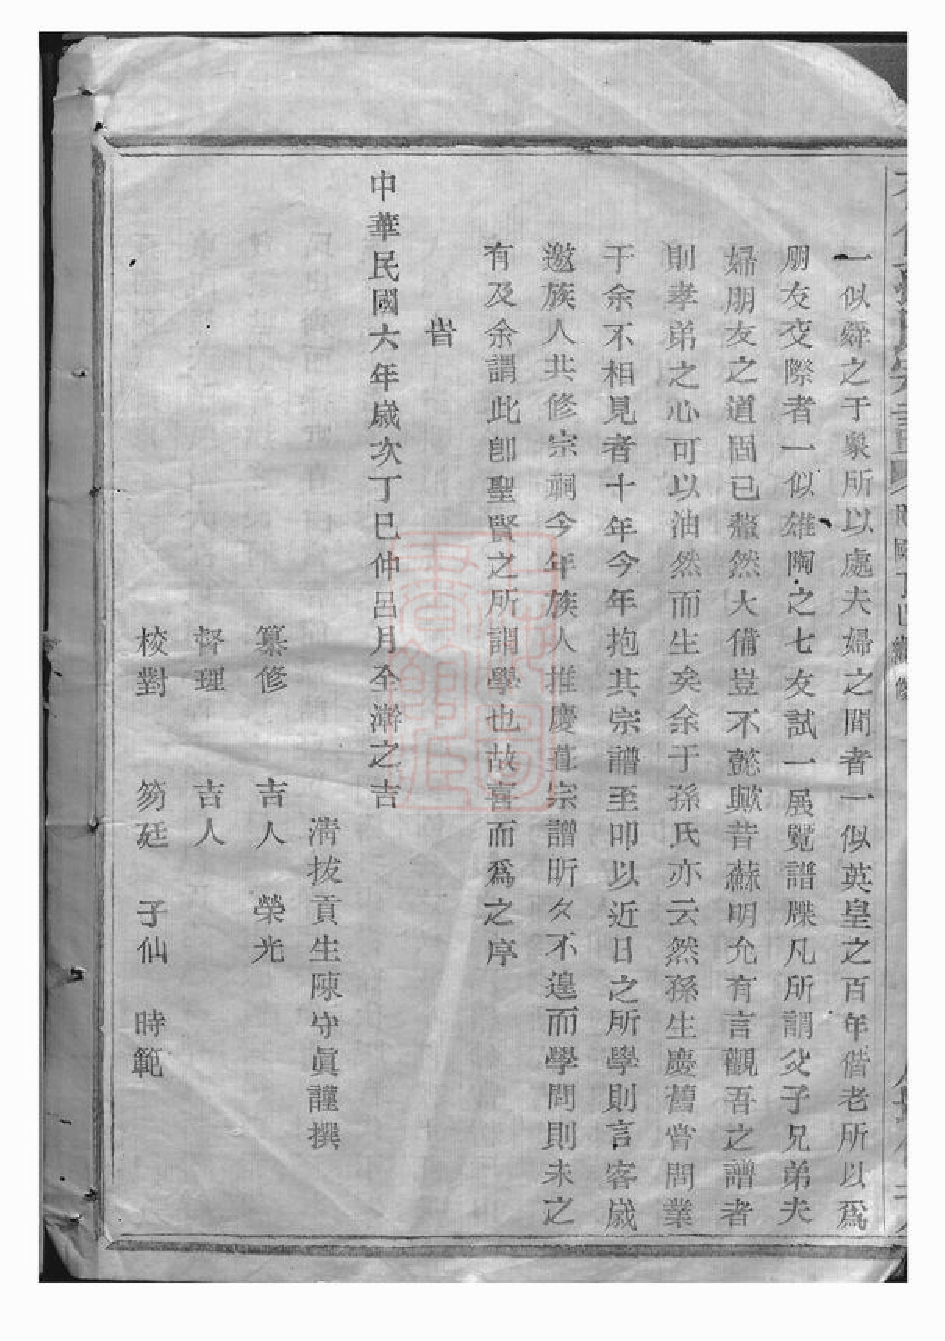 氏宗譜 民國丁巳續修
一似舜之于象所以處夫婦之間者一似英皇之百年偕老所以爲
朋友交際者一似雄陶之七友試一展覽譜牒凡所謂父子兄弟夫
婦朋友之道固已藹然大備豈不懿歟昔蘇明允有言觀吾之譜者
則孝弟之心可以油然而生矣余于孫氏亦云然孫生慶舊嘗問業
于余不相見者十年今年抱其宗譜至叩以近日之所學則言客歲
邀族人共修宗祠今年族人推慶葺宗譜昕夕不遑而學問則未之
有及余謂此卽聖賢之所謂學也故喜而爲之序
旹
中華民國六年歲次丁巳仲呂月全澣之吉
清拔貢生陳守眞謹撰
纂修 吉人 榮光
督理 吉人
校對 笏廷 子仙 時範